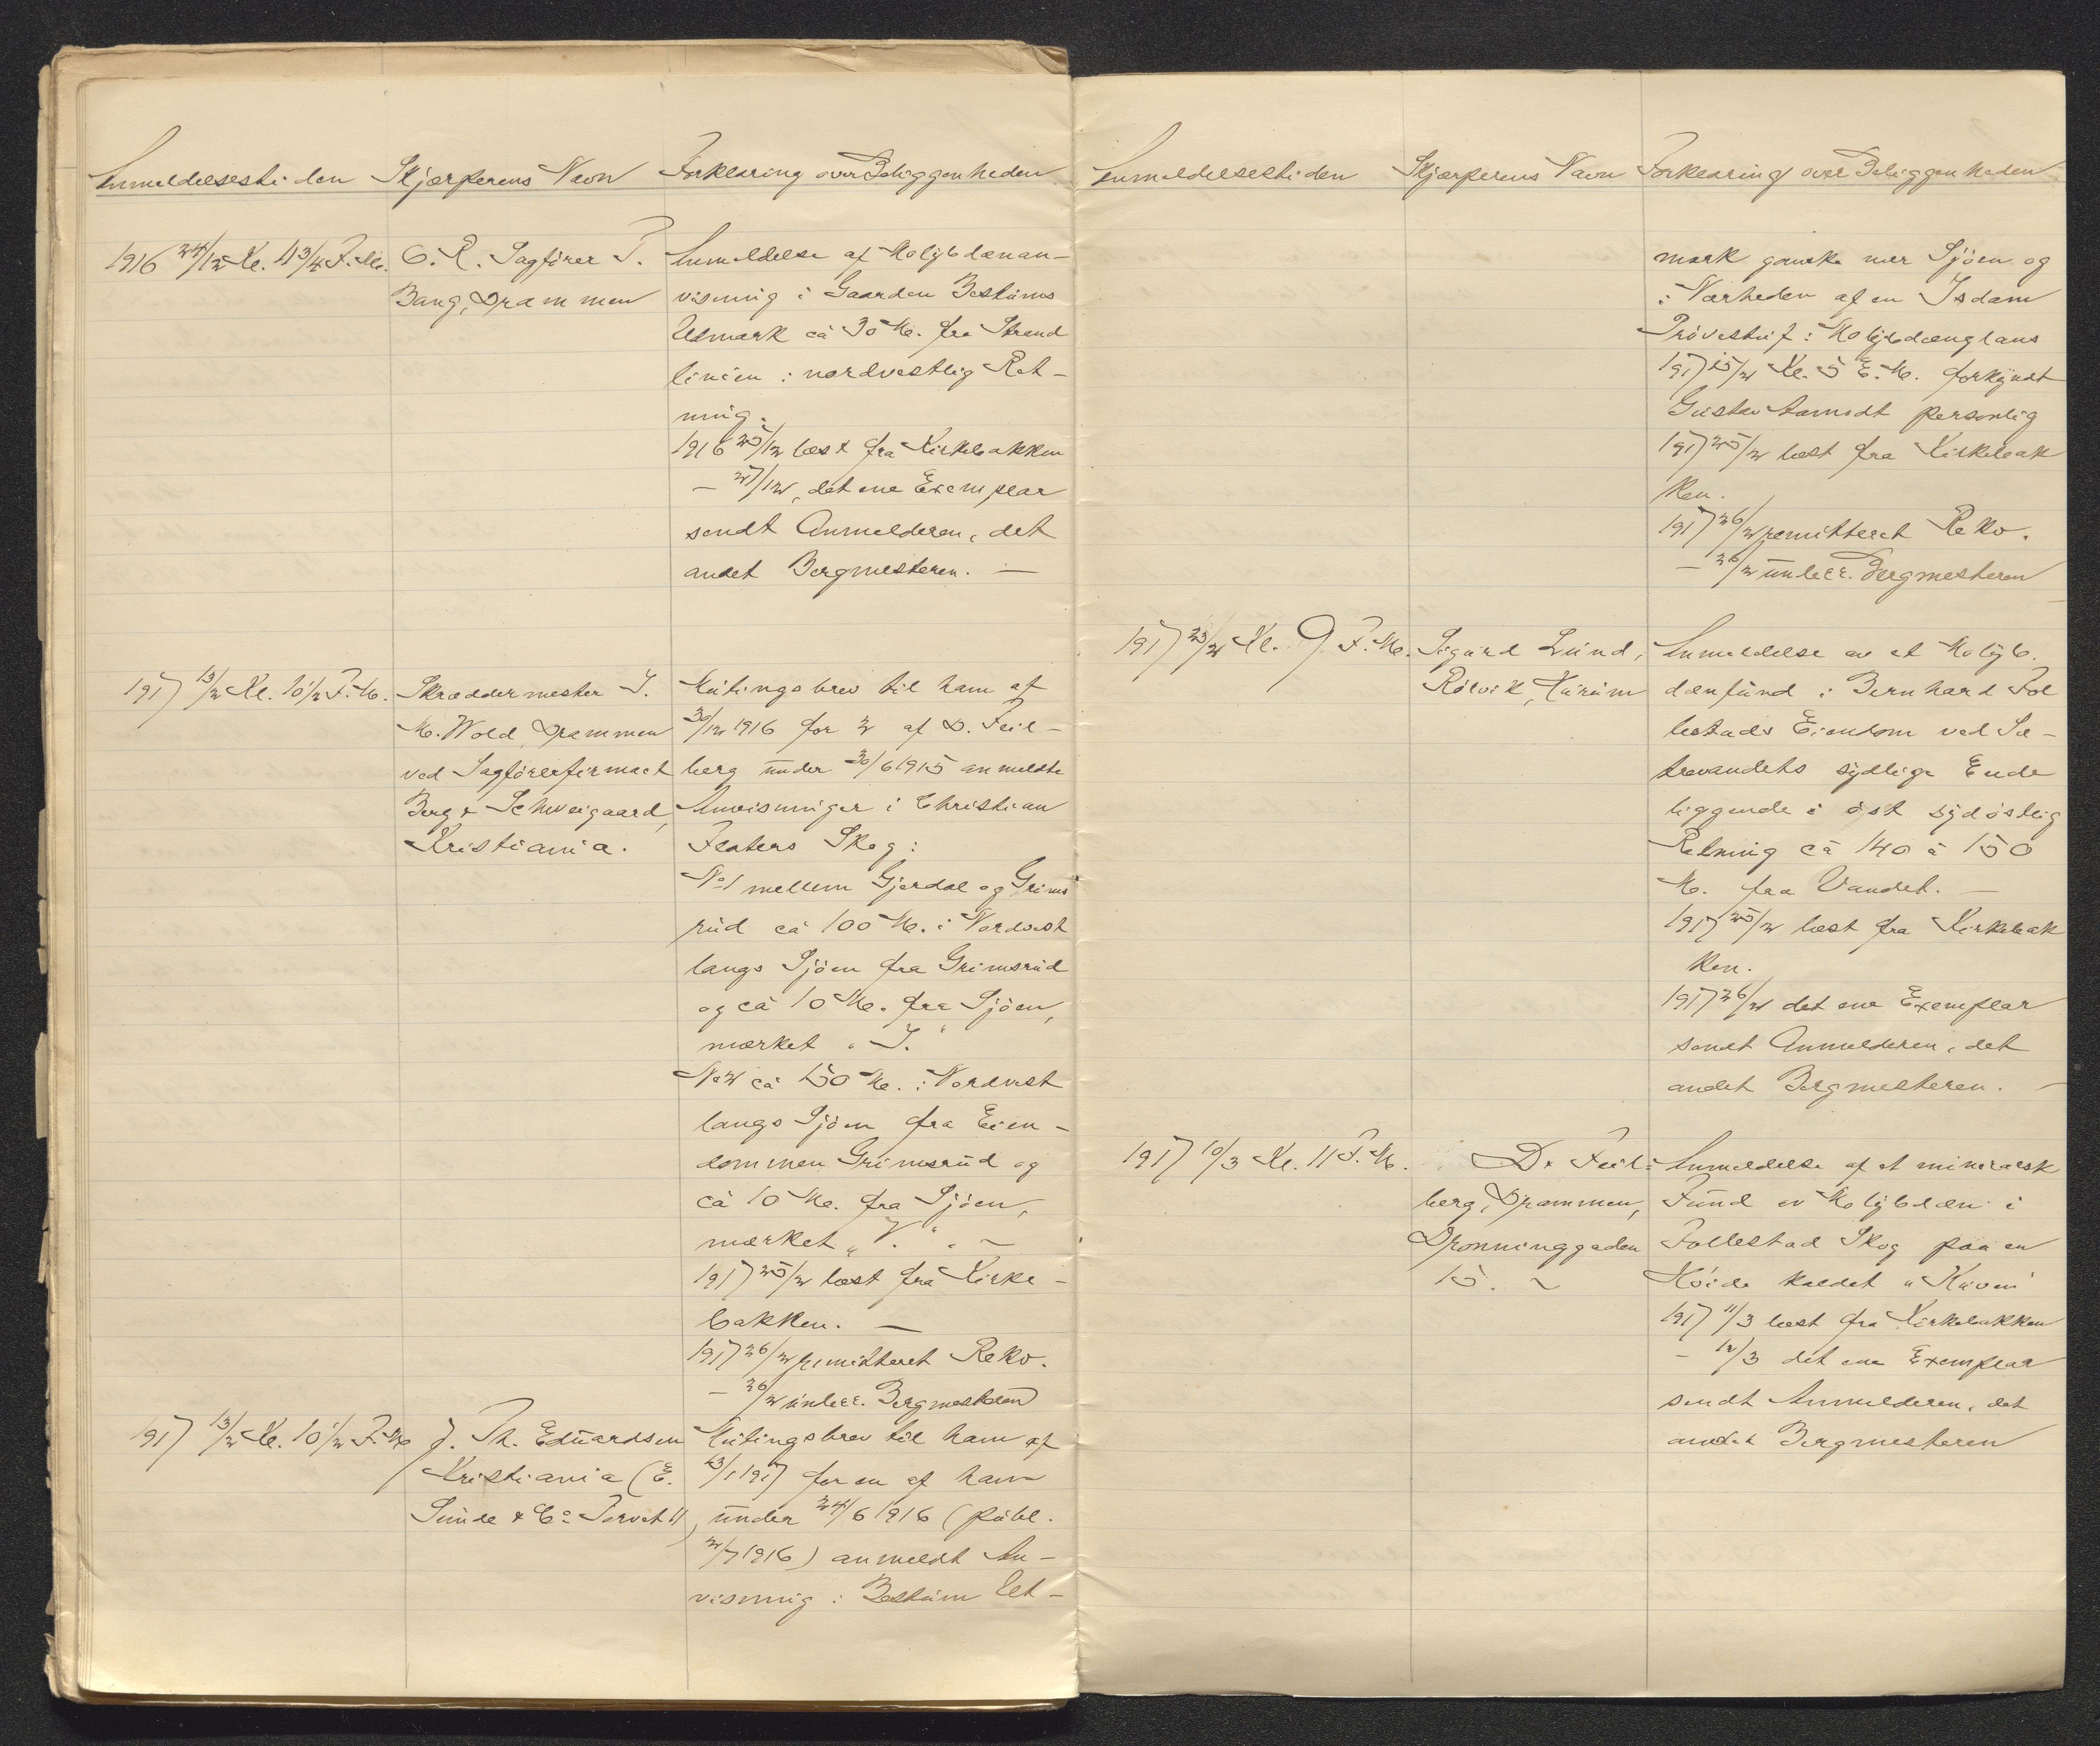 Anmeldelsestiden Skjærperens Navn Forklaring over Beliggenheden
1916 24/12 Kl. 11 3/4 F.M. O. R. Sagfører T. Anmeldelse af Molybdænan-
Bang, Drammen visning i Gaarden Bestums
Udmark ca 30 M. fra Strand
linien i nordvestlig Ret-
ning.
1916 25/12 læst fra Kirkebakken
— 27/12, det ene Exemplar
sendt Anmelderen, det
andet Bergmesteren. —
1917 13/2 Kl. 10 1/2 F.M. Skræddermester J. Mutingsbrev til ham af
M. Wold, Drammen 30/12 1916 for 2 af D. Feil-
ved Sagførerfirmaet berg under 30/6 1915 anmeldte
Berg & Schweigaard, Anvisninger i Christian
Kristiania. Flaters Skog:
No 1 mellem Gjerdal og Grims
rud ca 100 M. i Nordvest
langs Sjøen fra Grimsrud
og ca 10 M. fra Sjøen,
mærket „J."
No 2 ca 150 M. i Nordvest
langs Sjøen fra Eien-
dommen Grimsrud og
ca 10 M. fra Sjøen,
mærket „V." . —
1917 25/2 læst fra Kirke-
bakken. —
1917 26/2 remitteret Rekv.
— 26/2 underr. Bergmesteren
1917 13/2 Kl. 10 1/2 F.M. J. Th. Eduardsen Mutingsbrev til ham af
Kristiania (E. 23/1 1917 for en af ham
Sunde & Co Torvet 11) under 24/6 1916 (publ.
2/7 1916) anmeldt An-
visning i Bestum Ut-
Anmeldelsestiden Skjærperens Navn Forklaring over Beliggenheden
mark ganske nær Sjøen og
i Nærheden af en Isdam
Prøvestuf: Molybdænglans
1917 15/2 Kl. 5 E.M. forkyndt
Gustav personlig
1917 25/2 læst fra Kirkebak
ken.
1917 26/2 remitteret Rekv.
— 26/2 underr. Bergmesteren
1917 23/2 Kl. 9 F.M. Sigurd Lund, Anmeldelse av et Molyb
Rølvik, Hurum dænfund i Bernhard Fol
lestads Eiendom ved Sæ-
trevandets sydlige Ende
liggende i øst sydøstlig
Retning ca 140 à 150
M. fra Vandet. —
1917 25/2 læst fra Kirkebak
ken.
1917 26/2 det ene Exemplar
sendt Anmelderen, det
andet Bergmesteren. —
1917 10/3 Kl. 11 F.M. D. Feil- Anmeldelse af et mineralsk
berg, Drammen, Fund av Molybdæn i
Dronninggaden Follestad Skog paa en
15. ~ Høide kaldet „Kuven"
1917 11/3 læst fra Kirkebakken
— 12/3 det ene Exemplar
sendt Anmelderen, det
andet Bergmesteren